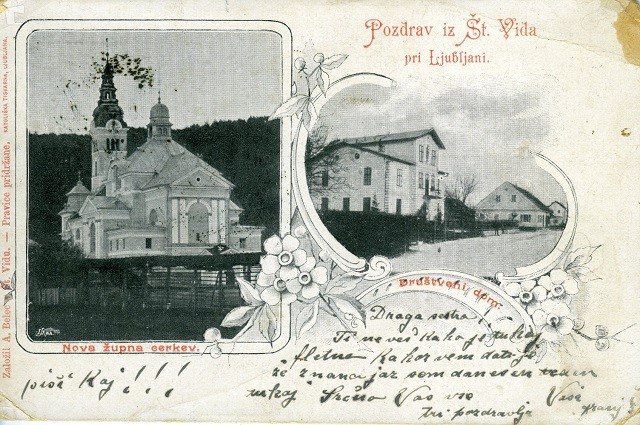 Pozdrav iz Št. Vida
pri Ljubljani.
Založil A. Belec Št. Vidu. — Pravice pridržane, KATOLIŠKA TISKARNA, LJUBLJANA.
Nova župna cerkev.
Društveni dom.
Draga sestra
Ti ne veš kako je tukaj
fletno kakor vem da ti je
že znano jaz som danes en
tukaj Srčno Vas vse
pozdravlja
piši Kaj!!!